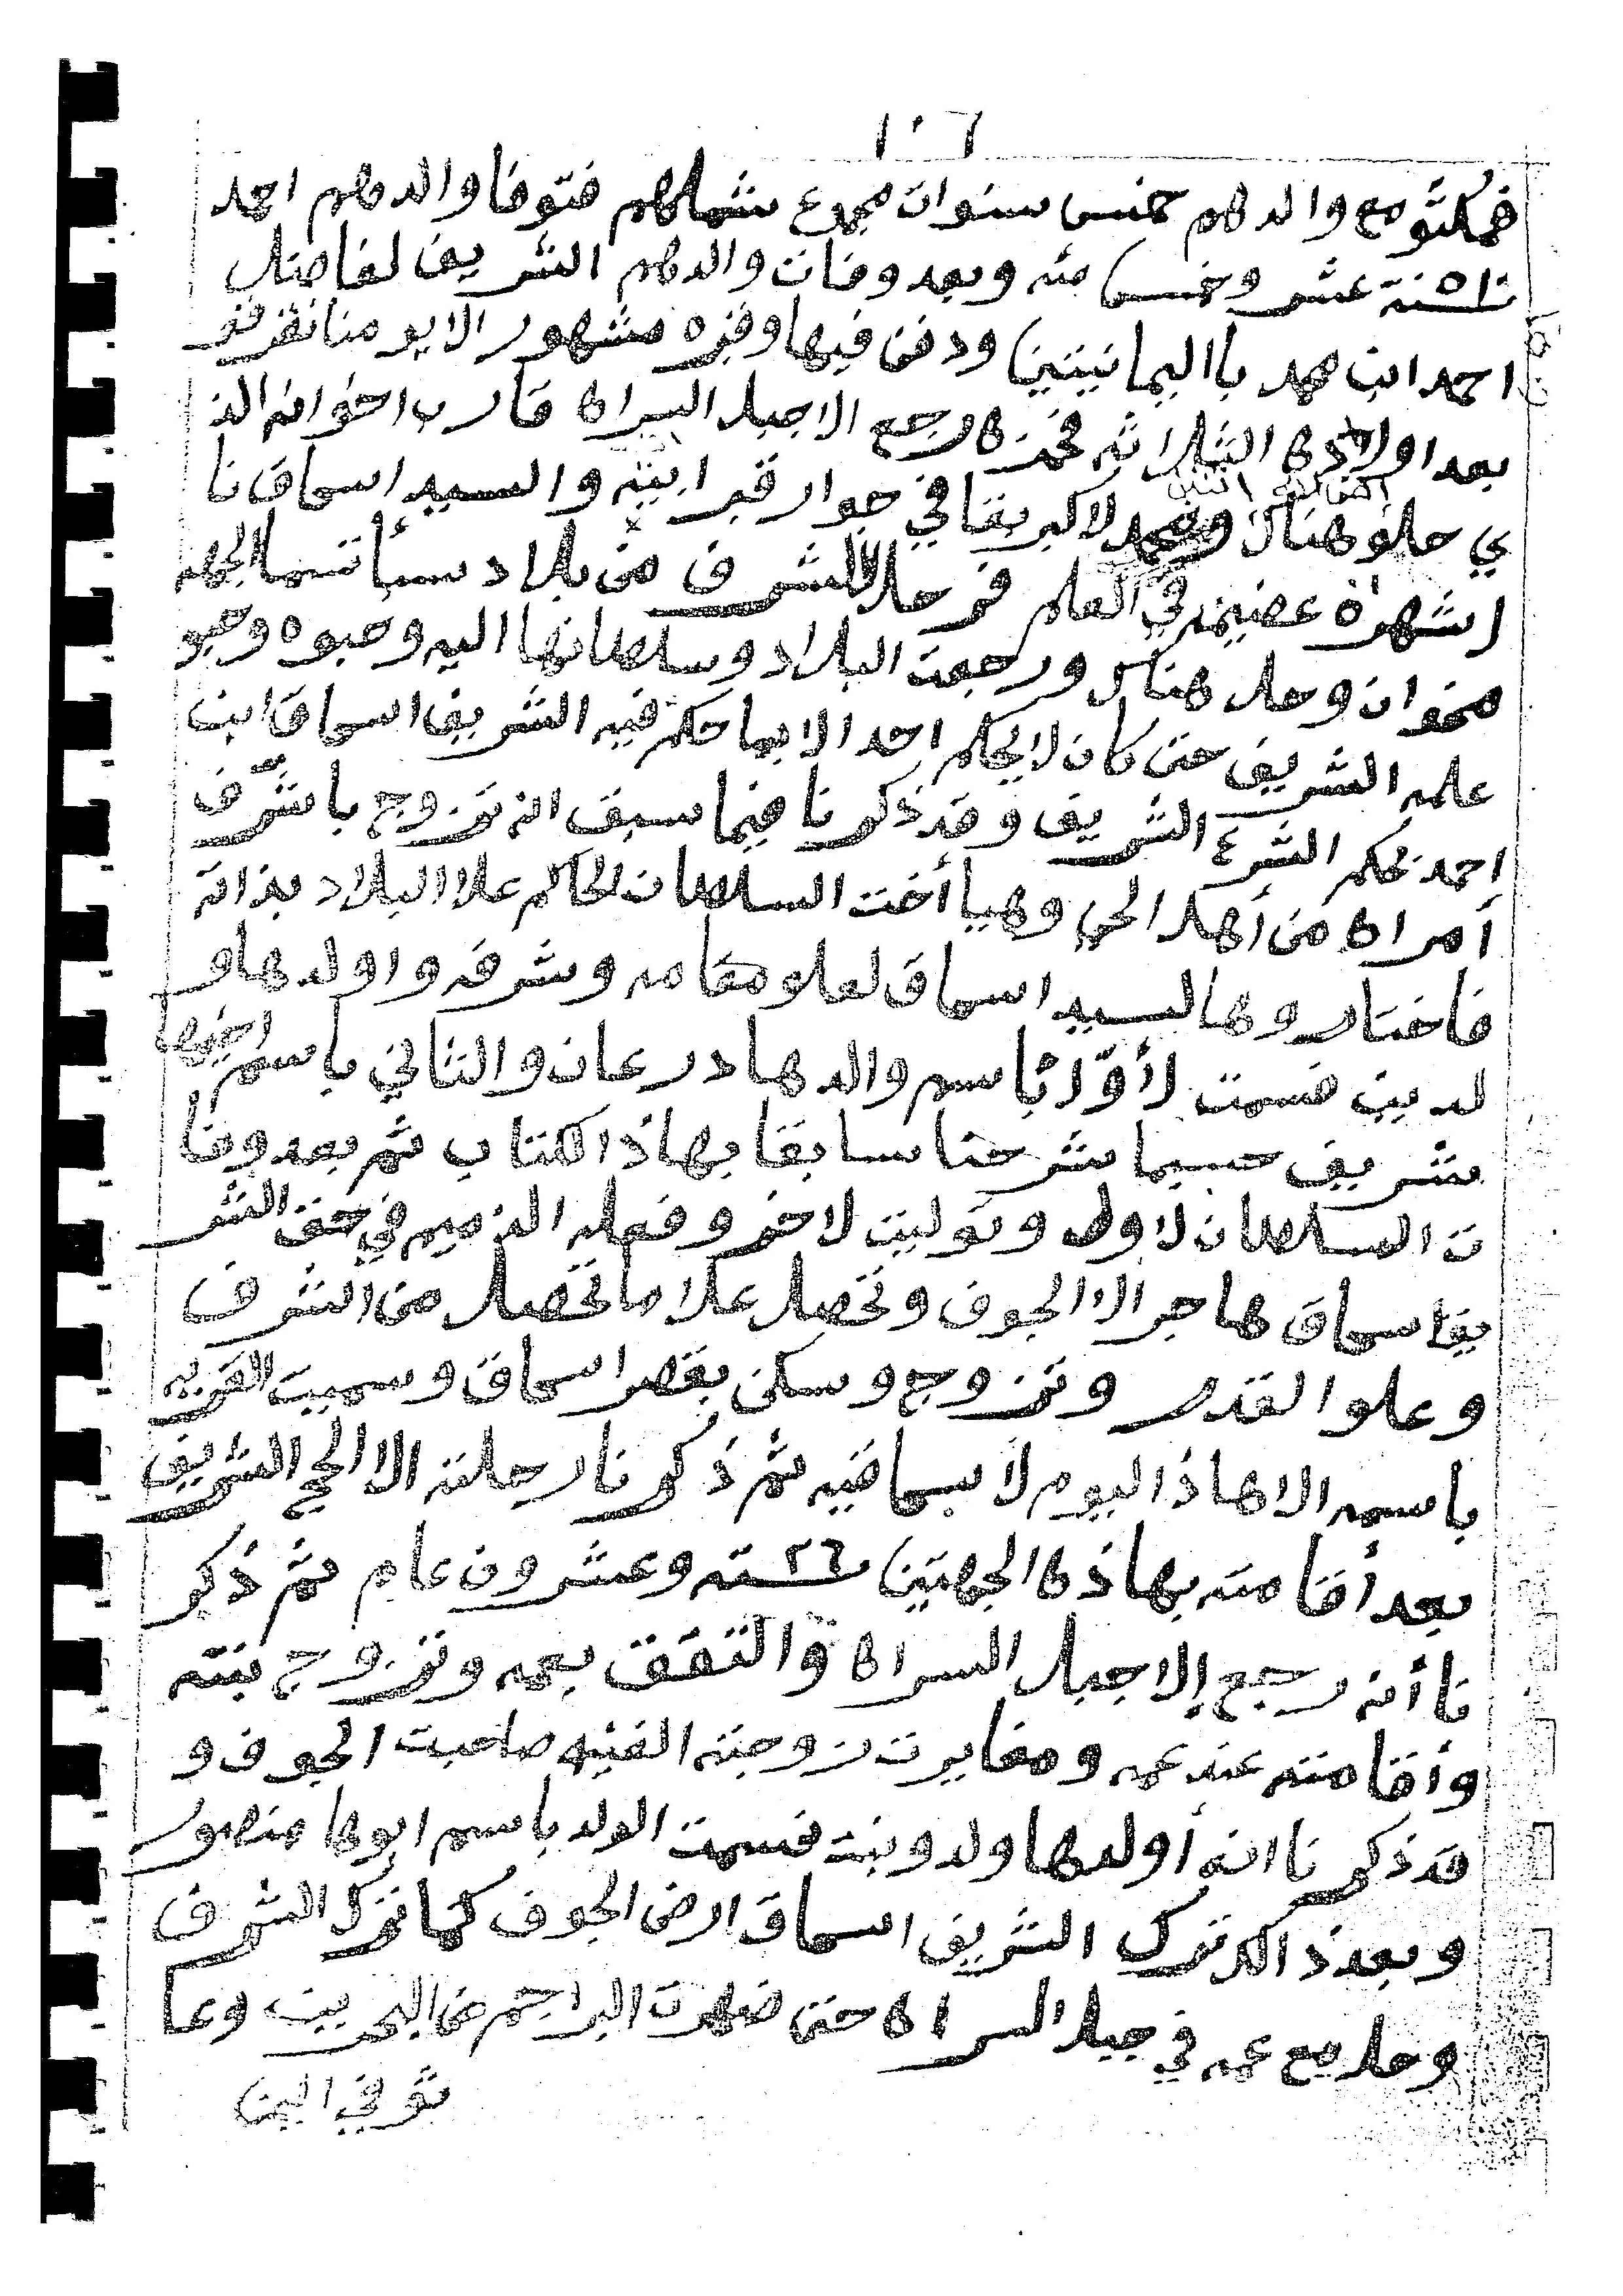 ١٠٦
فمكثو مع والدهم خمس سنوات مجمع شملهم فتوفا والدهم احمد
سنة عشر وخمس مئه وبعد وفات والدهم الشريف لفاضل
احمد ابن محمد باليمانيتين ودفن فيها وقبره مشهور الا يومنا تفرقو
بعد اولاده الثلاثه فحمزه رجع الا جبل السراه قارب اخوانه الذ
ي حلو هناك ومحمد لاكبر بقا في جوار قبر ابيه والسيد اسماق نا
ل شهرة عضيمه في العلم فرحل للشرف من بلاد سبأ تسما الجهه
مخوان وحل هناك ورجعت البلاد وسلطانها اليه وحبوه وحبو
علمه الشريف حتى كان لا يحكم احد الا بما حكم فيه الشريف اسماق ابن
احمد بحكم الشرع الشريف وقد ذكرنا فيما سبق انه تزوج بأشرف
أمراه من أهل الحي وهيا أخت السلطان لحاكم علا البلاد بذاته
فاختاروها لسيد اسماق لعلو مقامه وشرفه واولدها و
لدين فسمت لأول باسم والدها درعان والثاني باسم اخيها
شريف حسبما شرحنا سابقا بهاذا الكتاب ثم بعد وفا
ت السلطان لاول وتوليت لاخر وفعله الذميم في حق الشر
يف اسماق هاجر الا الجوف وتحصل علا ما تحصل من الشرف
وعلو القدر وتزوج وسكن بقصر اسماق وسميت القريه
باسمه الا هاذا اليوم لا سما فيه ثم ذكرنا رحلته الا الحج الشريف
بعد أقامته بهاذه الجهتين ٢٦ سته وعشرون عام ثم ذكر
نا أنه رجع إلا جبل السراه والتقق بعمه وتزوج بنته
وأقامته عند عمه ومغايرت زوجته صاحبت الجوف و
قد ذكرنا انه أولدها ولد وبنت فسمت الولد باسم ابوها منصور
وبعد ذالك ترك الشريف اسماق ارض الجوف كما ترك الشرف
وحل مع عمه في جبل السراه حتى ضهرت البراجم من البحرين وعا
توفي اليمن